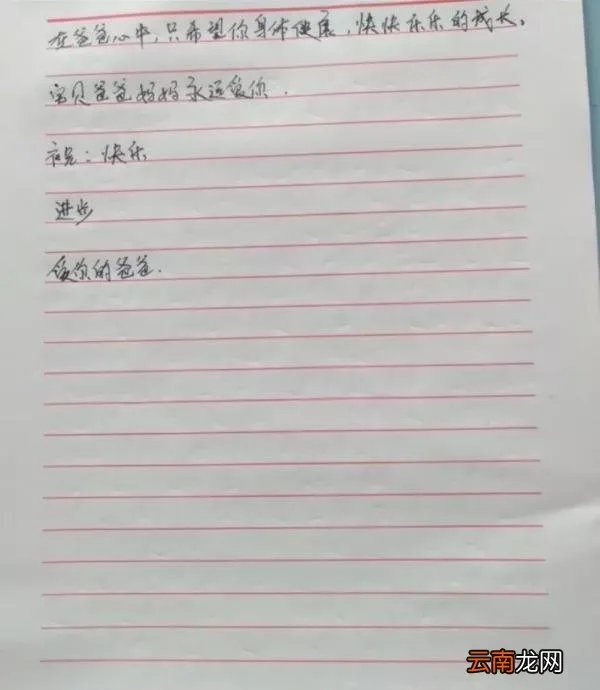 在爸爸心中，只希望你身体健康，快快乐乐的成长。
宝贝爸爸妈妈永远爱你.
祝：快乐
进步
爱你的爸爸.
云南龙网